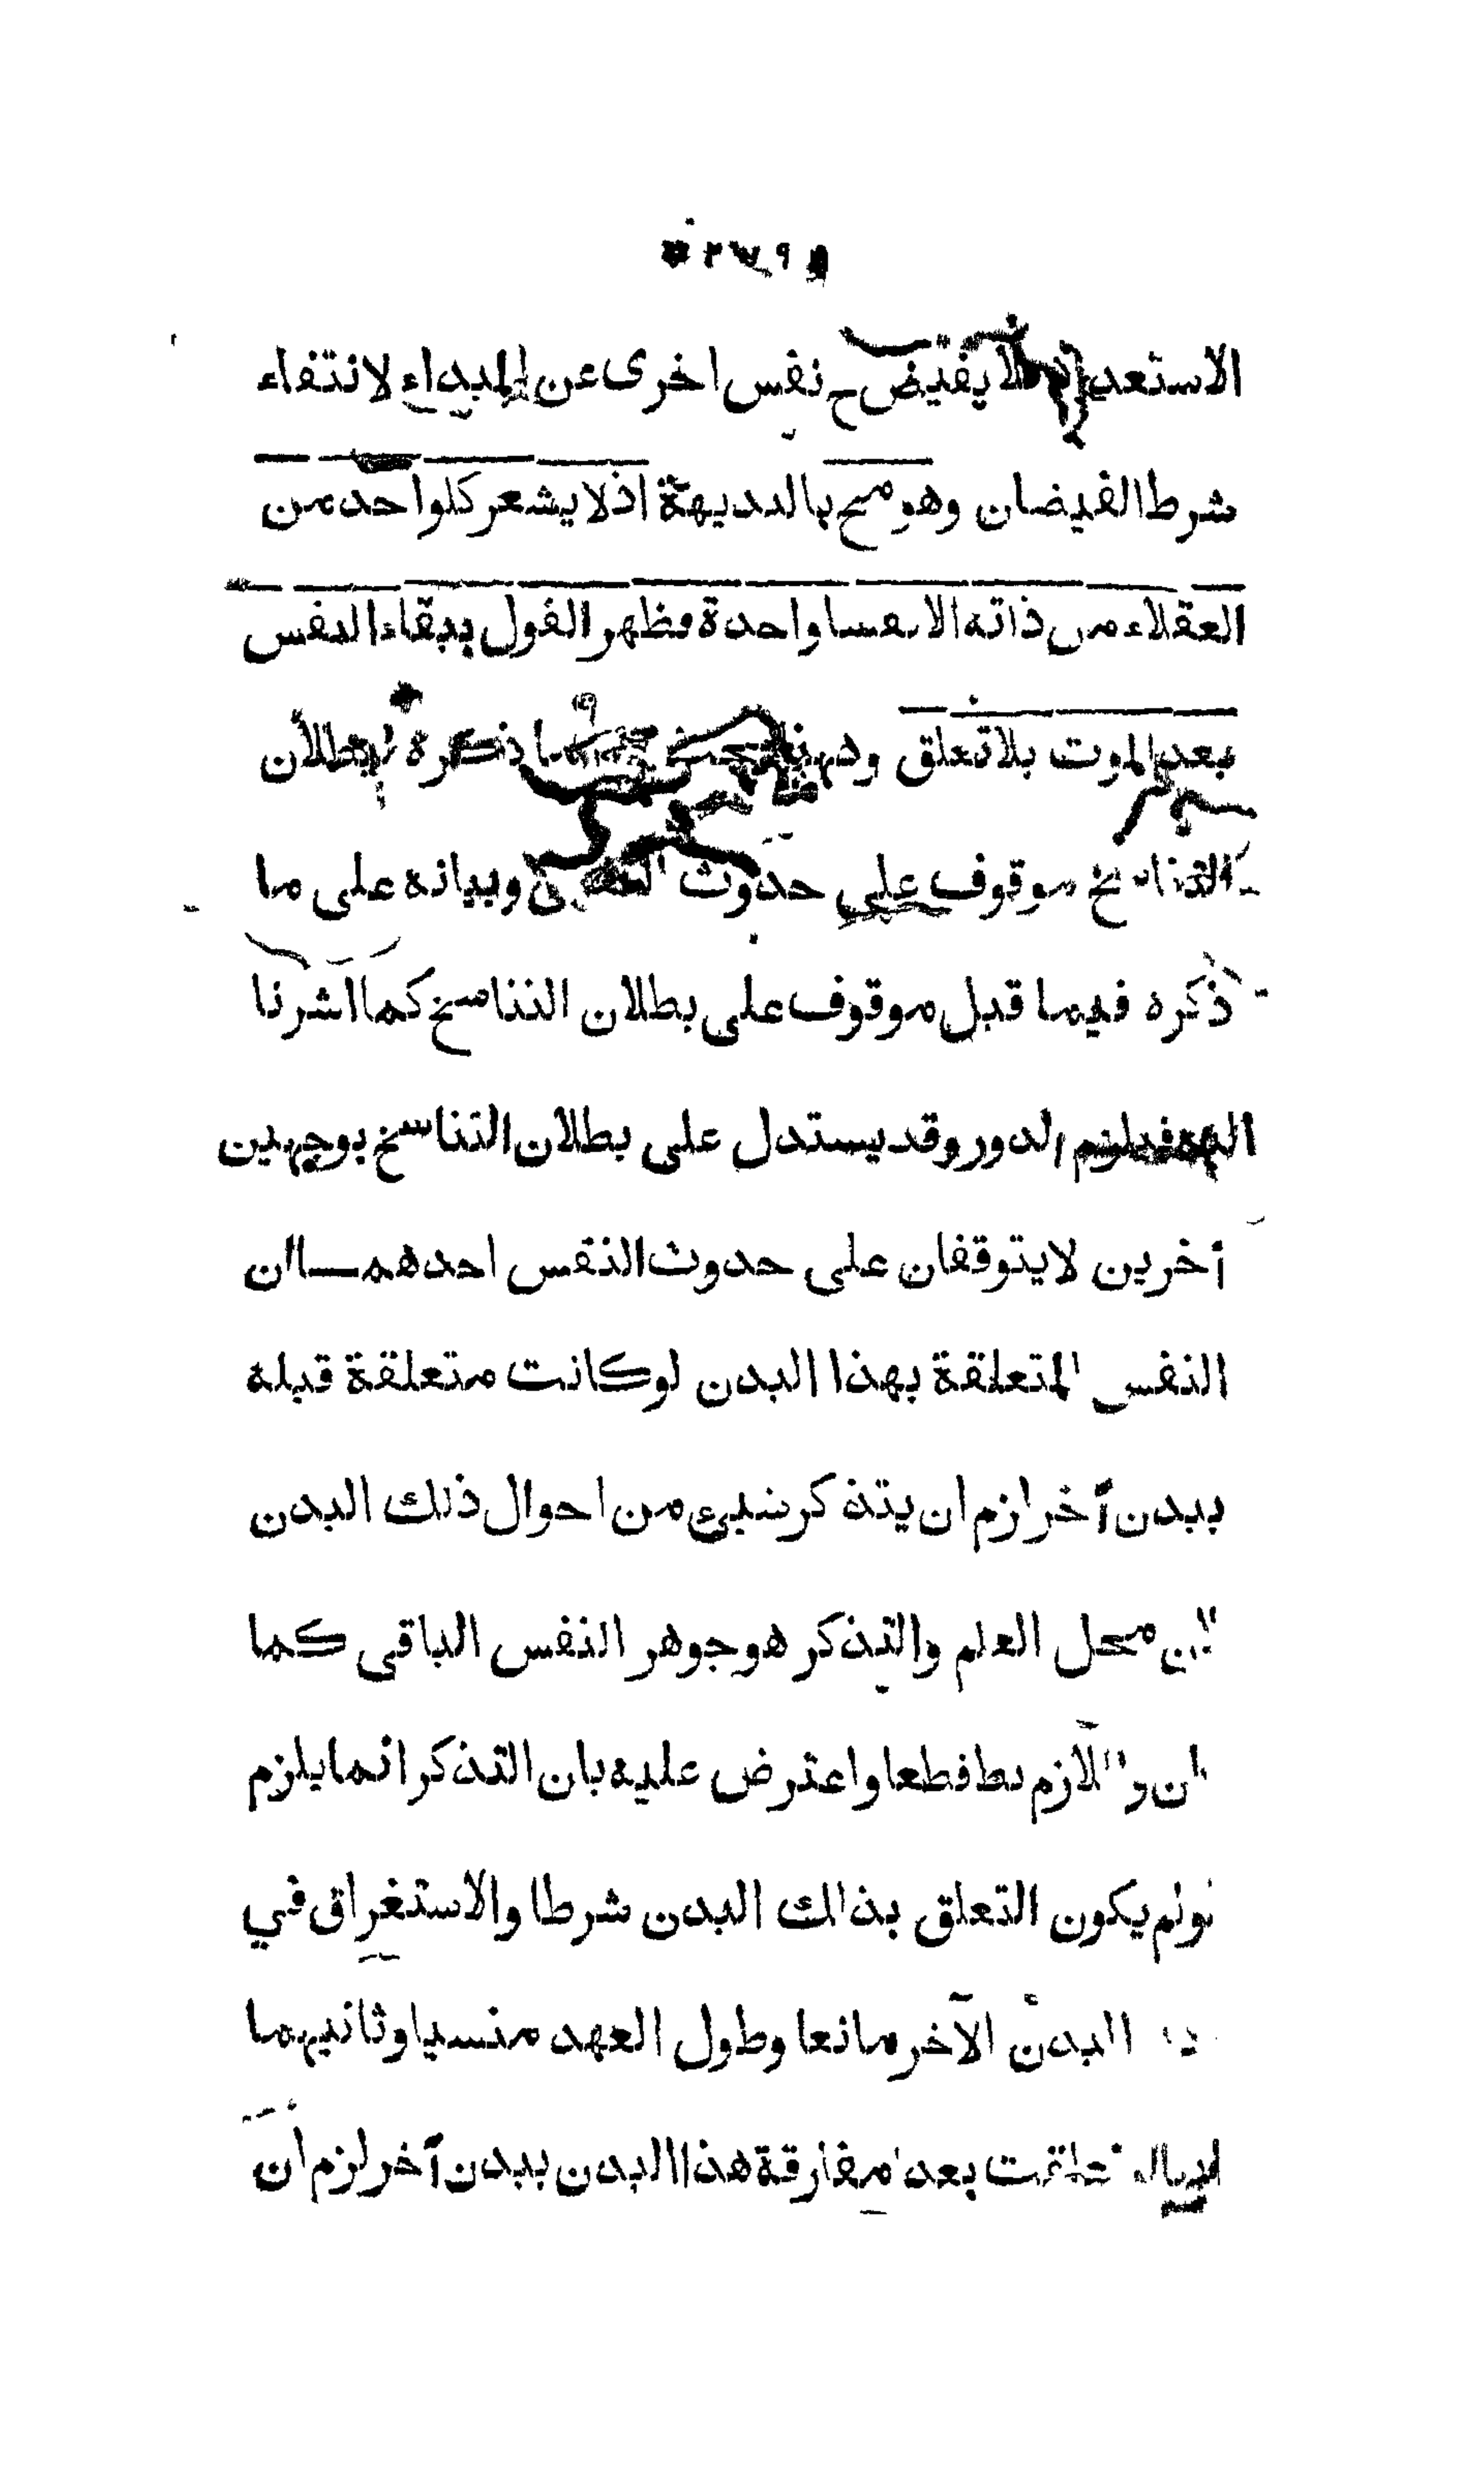 * ٢٧٩ *
الاستعداد لا يفيض ح نفس اخرى عن المبداء لانتفاء
شرط الفيضان وهو مح بالبديهة اذ لا يشعر كلواحد من
العقلاء من ذاته الا نفسا واحدة فظهر القول ببقاء النفس
بعد الموت بلا تعلق وههنا بحث ما ذكره بطلان
التناسخ موقوف على حدوث النفس وبيانه على ما
ذكره فيما قبل موقوف على بطلان التناسخ كما اشرنا
اليه فيلزم الدور وقد يستدل على بطلان التناسخ بوجهين
آخرين لا يتوقفان على حدوث النفس احدهما ان
النفس المتعلقة بهذا البدن لو كانت متعلقة قبله
ببدن آخر لزم ان يتذكر شيئ من احوال ذلك البدن
لان محل العلم والتذكر هو جوهر النفس الباقى كما
كان واللازم بط قطعا واعترض عليه بان التذكر انما يلزم
لو لم يكون التعلق بذالك البدن شرطا والاستغراق في
البدن الآخر مانعا وطول العهد منسيا وثانيهما
تعلقت بعد مفارقة هذا البدن ببدن آخر لزم ان